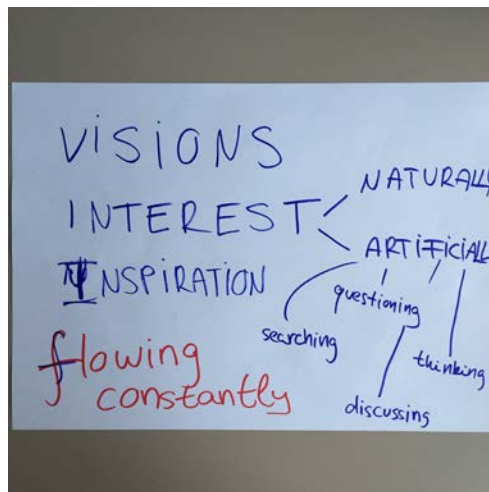 VISIONS
INTEREST
NATURALLY
ARTIFICIALL
INSPIRATION
questioning
searching
thinking
discussing
flowing
constantly